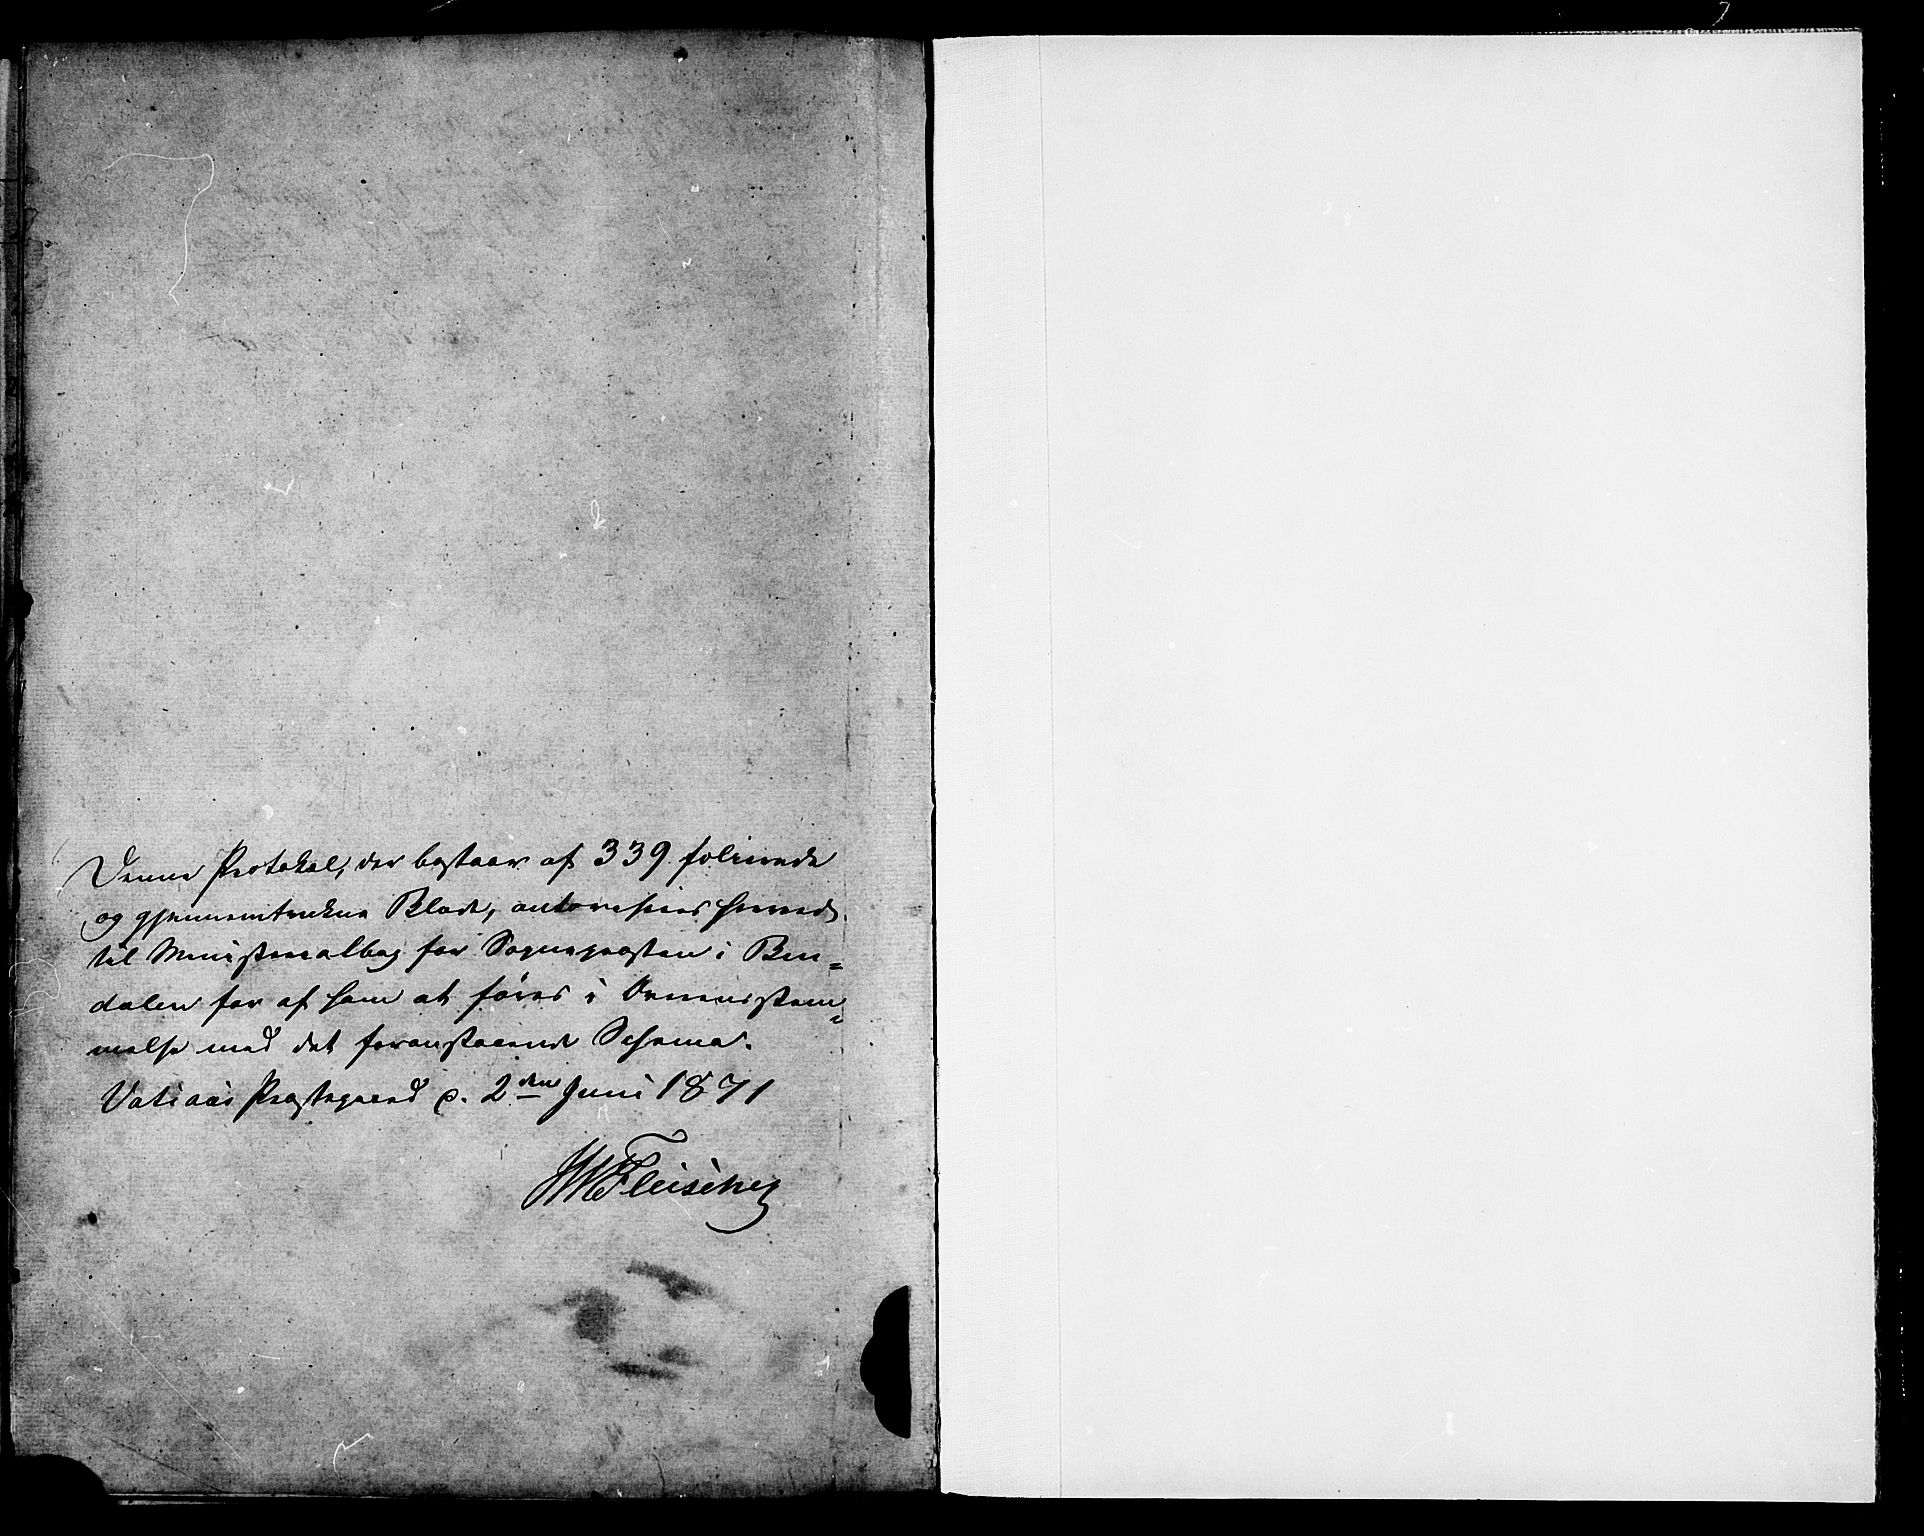 Denne Protokol, der bestaar af 339 folierede
og gjennemtrukne Blade, autoriseres herved
til Ministerialbog for Sognepræsten i Bin=
dalen for af ham at føres i Overensstem=
melse med det foranstaaende Schema.
Vatsaas Præstegaard d. 2den Juni 1871
Fleischer